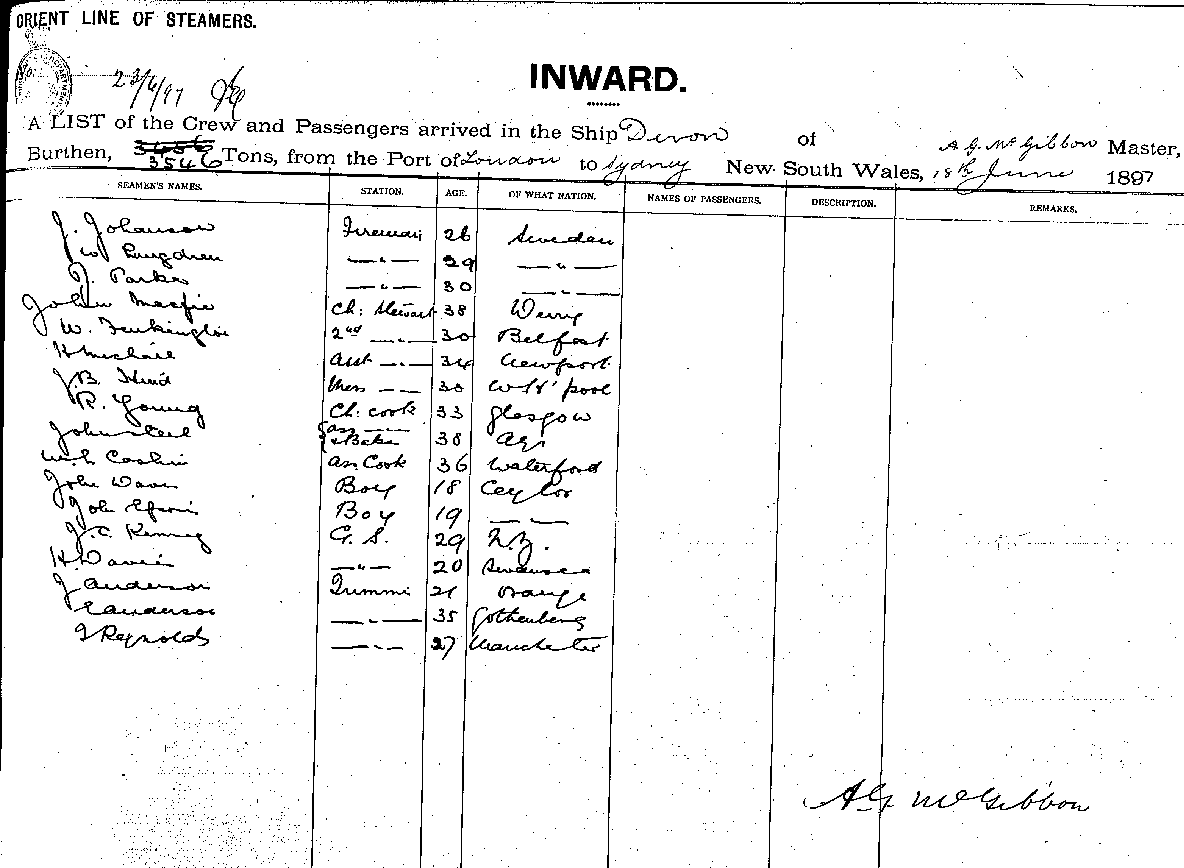 ORIENT LINE OF STEAMERS.
23/6/97
INWARD.
A LIST of the Crew and Passengers arrived in the Ship Devon of A G McGibbon Master,
Burthen, 3546 Tons, from the Port of London to Sydney New South Wales, 18th June 1897
SEAMEN'S NAMES. STATION. AGE. OF WHAT NATION. NAMES OF PASSENGERS. DESCRIPTION. REMARKS.
J. Johanson Fireman 26 Sweden
W 29 —"—
J. Parker —"— 30 —"—
John Macfie Ch: Steward 38
W. 2nd —"— 30 Belfast
H 34 Newport
J.B. Hind Mess —— 30 W H'pool
R. Young Ch: cook 33 Glasgow
John Steel & Baker 38 Ayr
Cook 36 Waterford
John Boy 18 Ceylon
John Boy 19 — —
J.C. Kenny G. S. 29 N.Z.
H Davies —"— 20 Swansea
J Anderson Trimmer 21 Orange
Anderson —"— 35 Gothenberg
J Reynolds —"— 27 Manchester
A G McGibbon